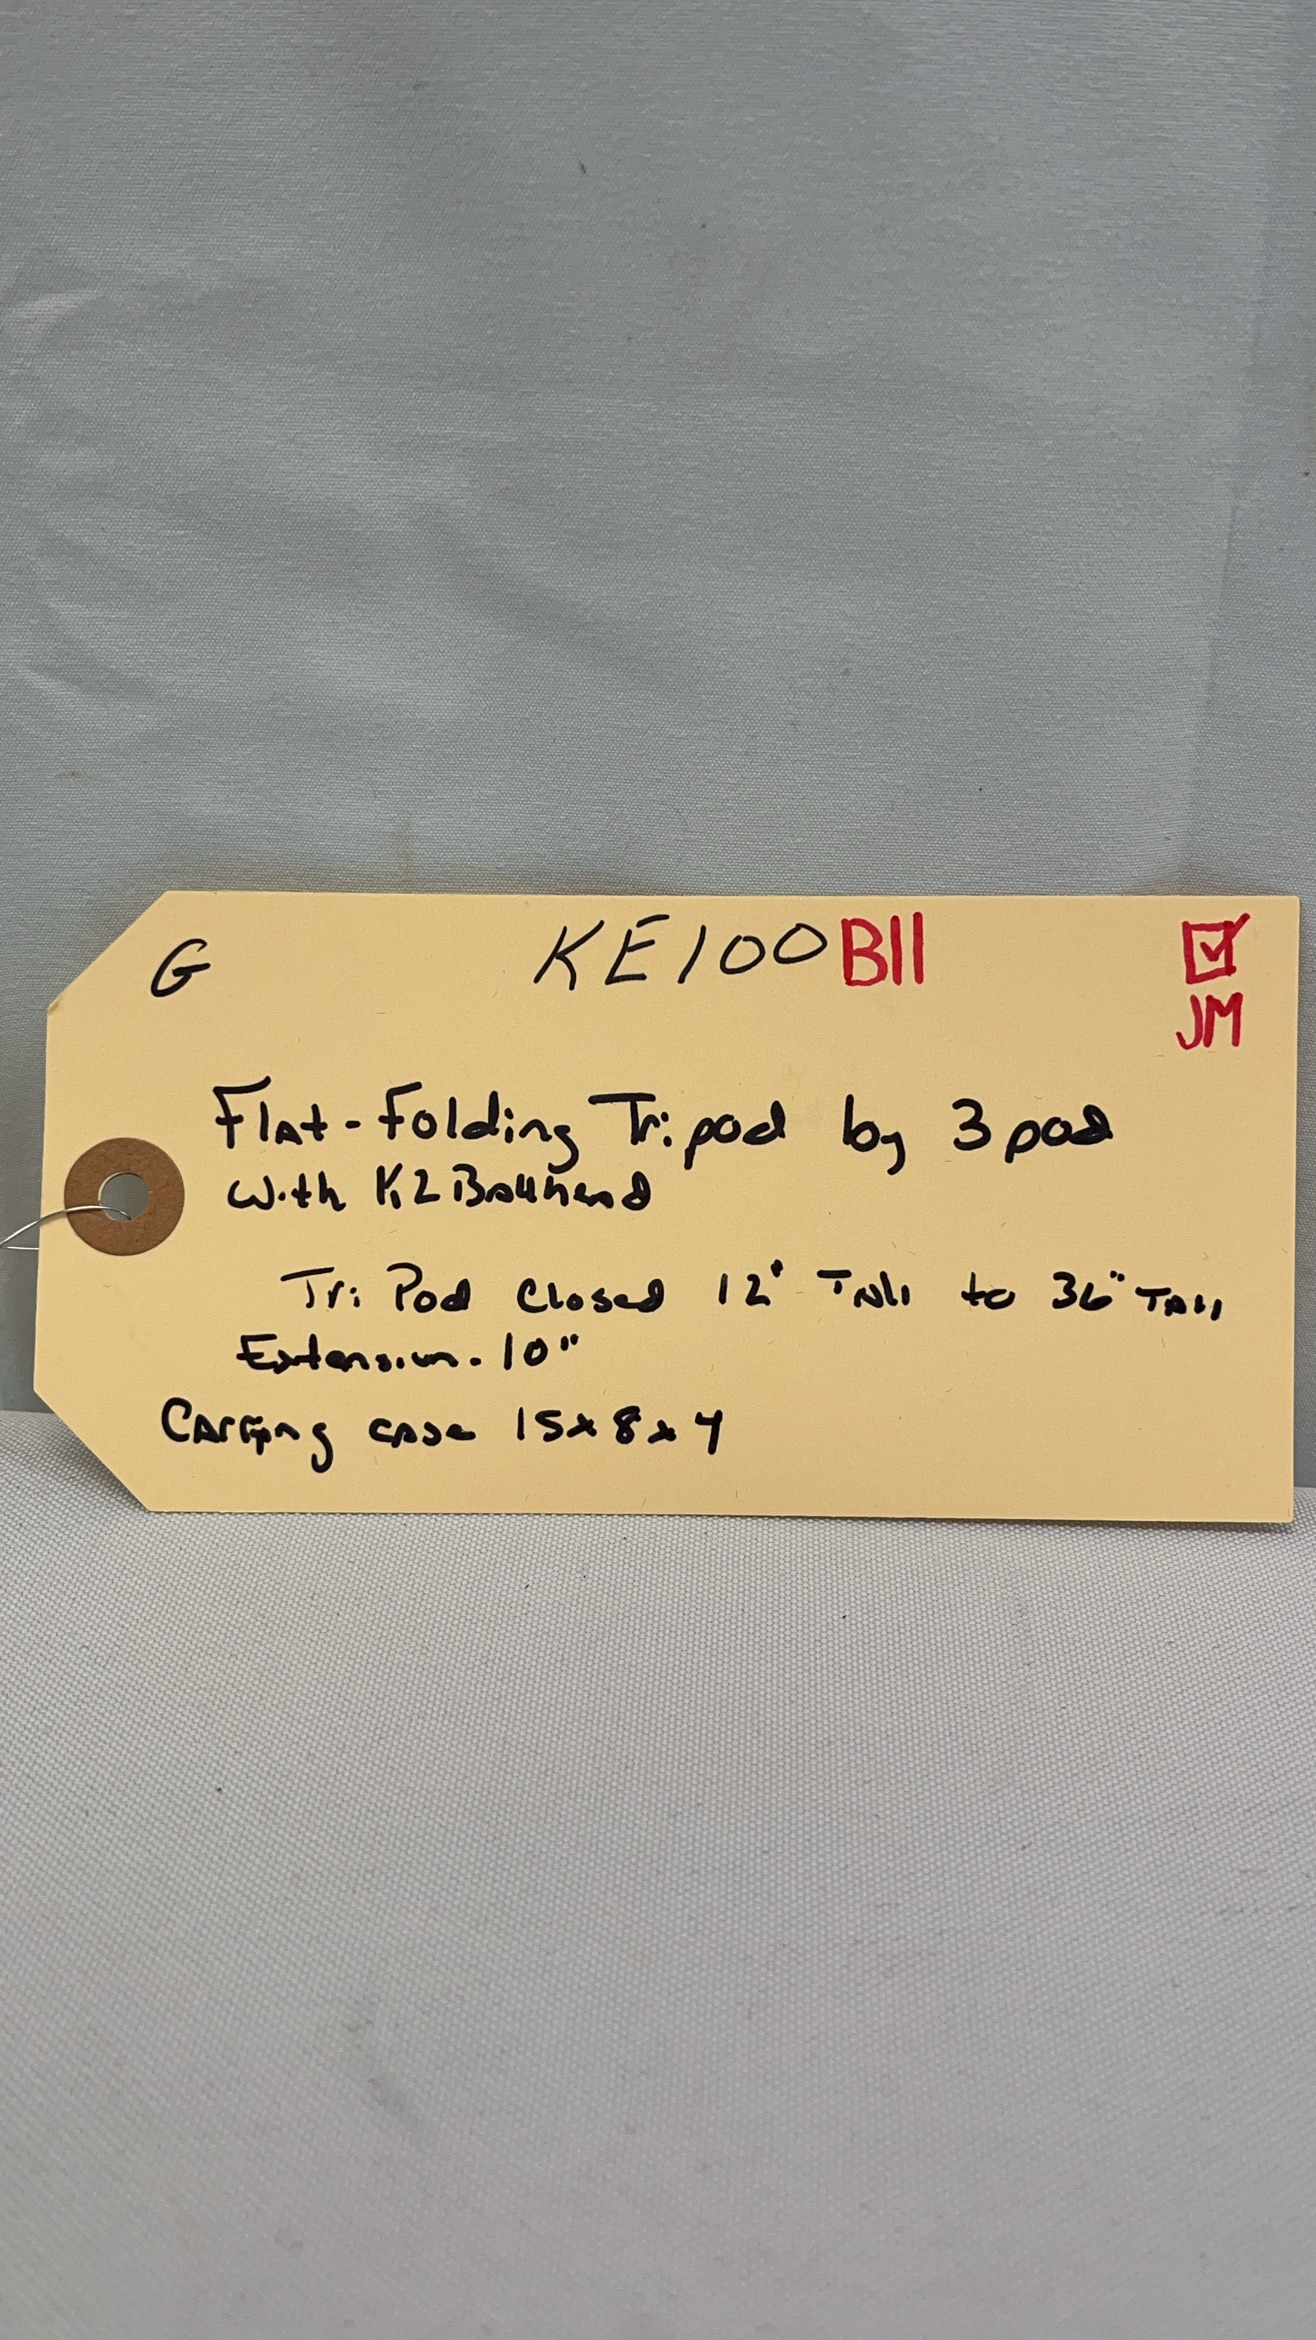 G KE100 B11
JM
Flat-Folding Tripod by 3pod
with K2 Ballhead
Tri Pod Closed 12" Tall to 36" Tall
Extension. 10"
Carrying case 15x8x4